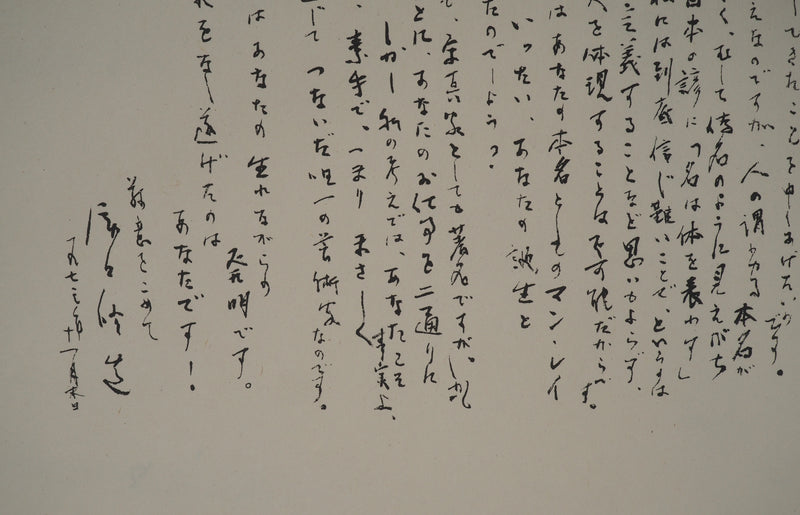 してきたことを申しあげたいのです。
えなのですが、人の謂わゆる本名が
く、むしろ偽名のように見えがち
日本の諺に「名は体を表わす」
私には到底信じ難いことで、というのは
定義することなど思いもよらず、
人を体現することは不可能だからです。
はあなたの本名としてのマン・レイ
いったい、あなたの誕生と
たのでしょう?
て、写真家としても著名ですが、しかし
とに、あなたのお仕事を二通りに
しかし私の考えでは、あなたこそ
素手で、つまり まさしく事実上、
じて つないだ唯一の芸術家なのです。
は あなたの 生れながらの
発明です。
れをなし遂げたのは
あなたです!
敬意をこめて
瀧口修造
一九七三年十一月末日